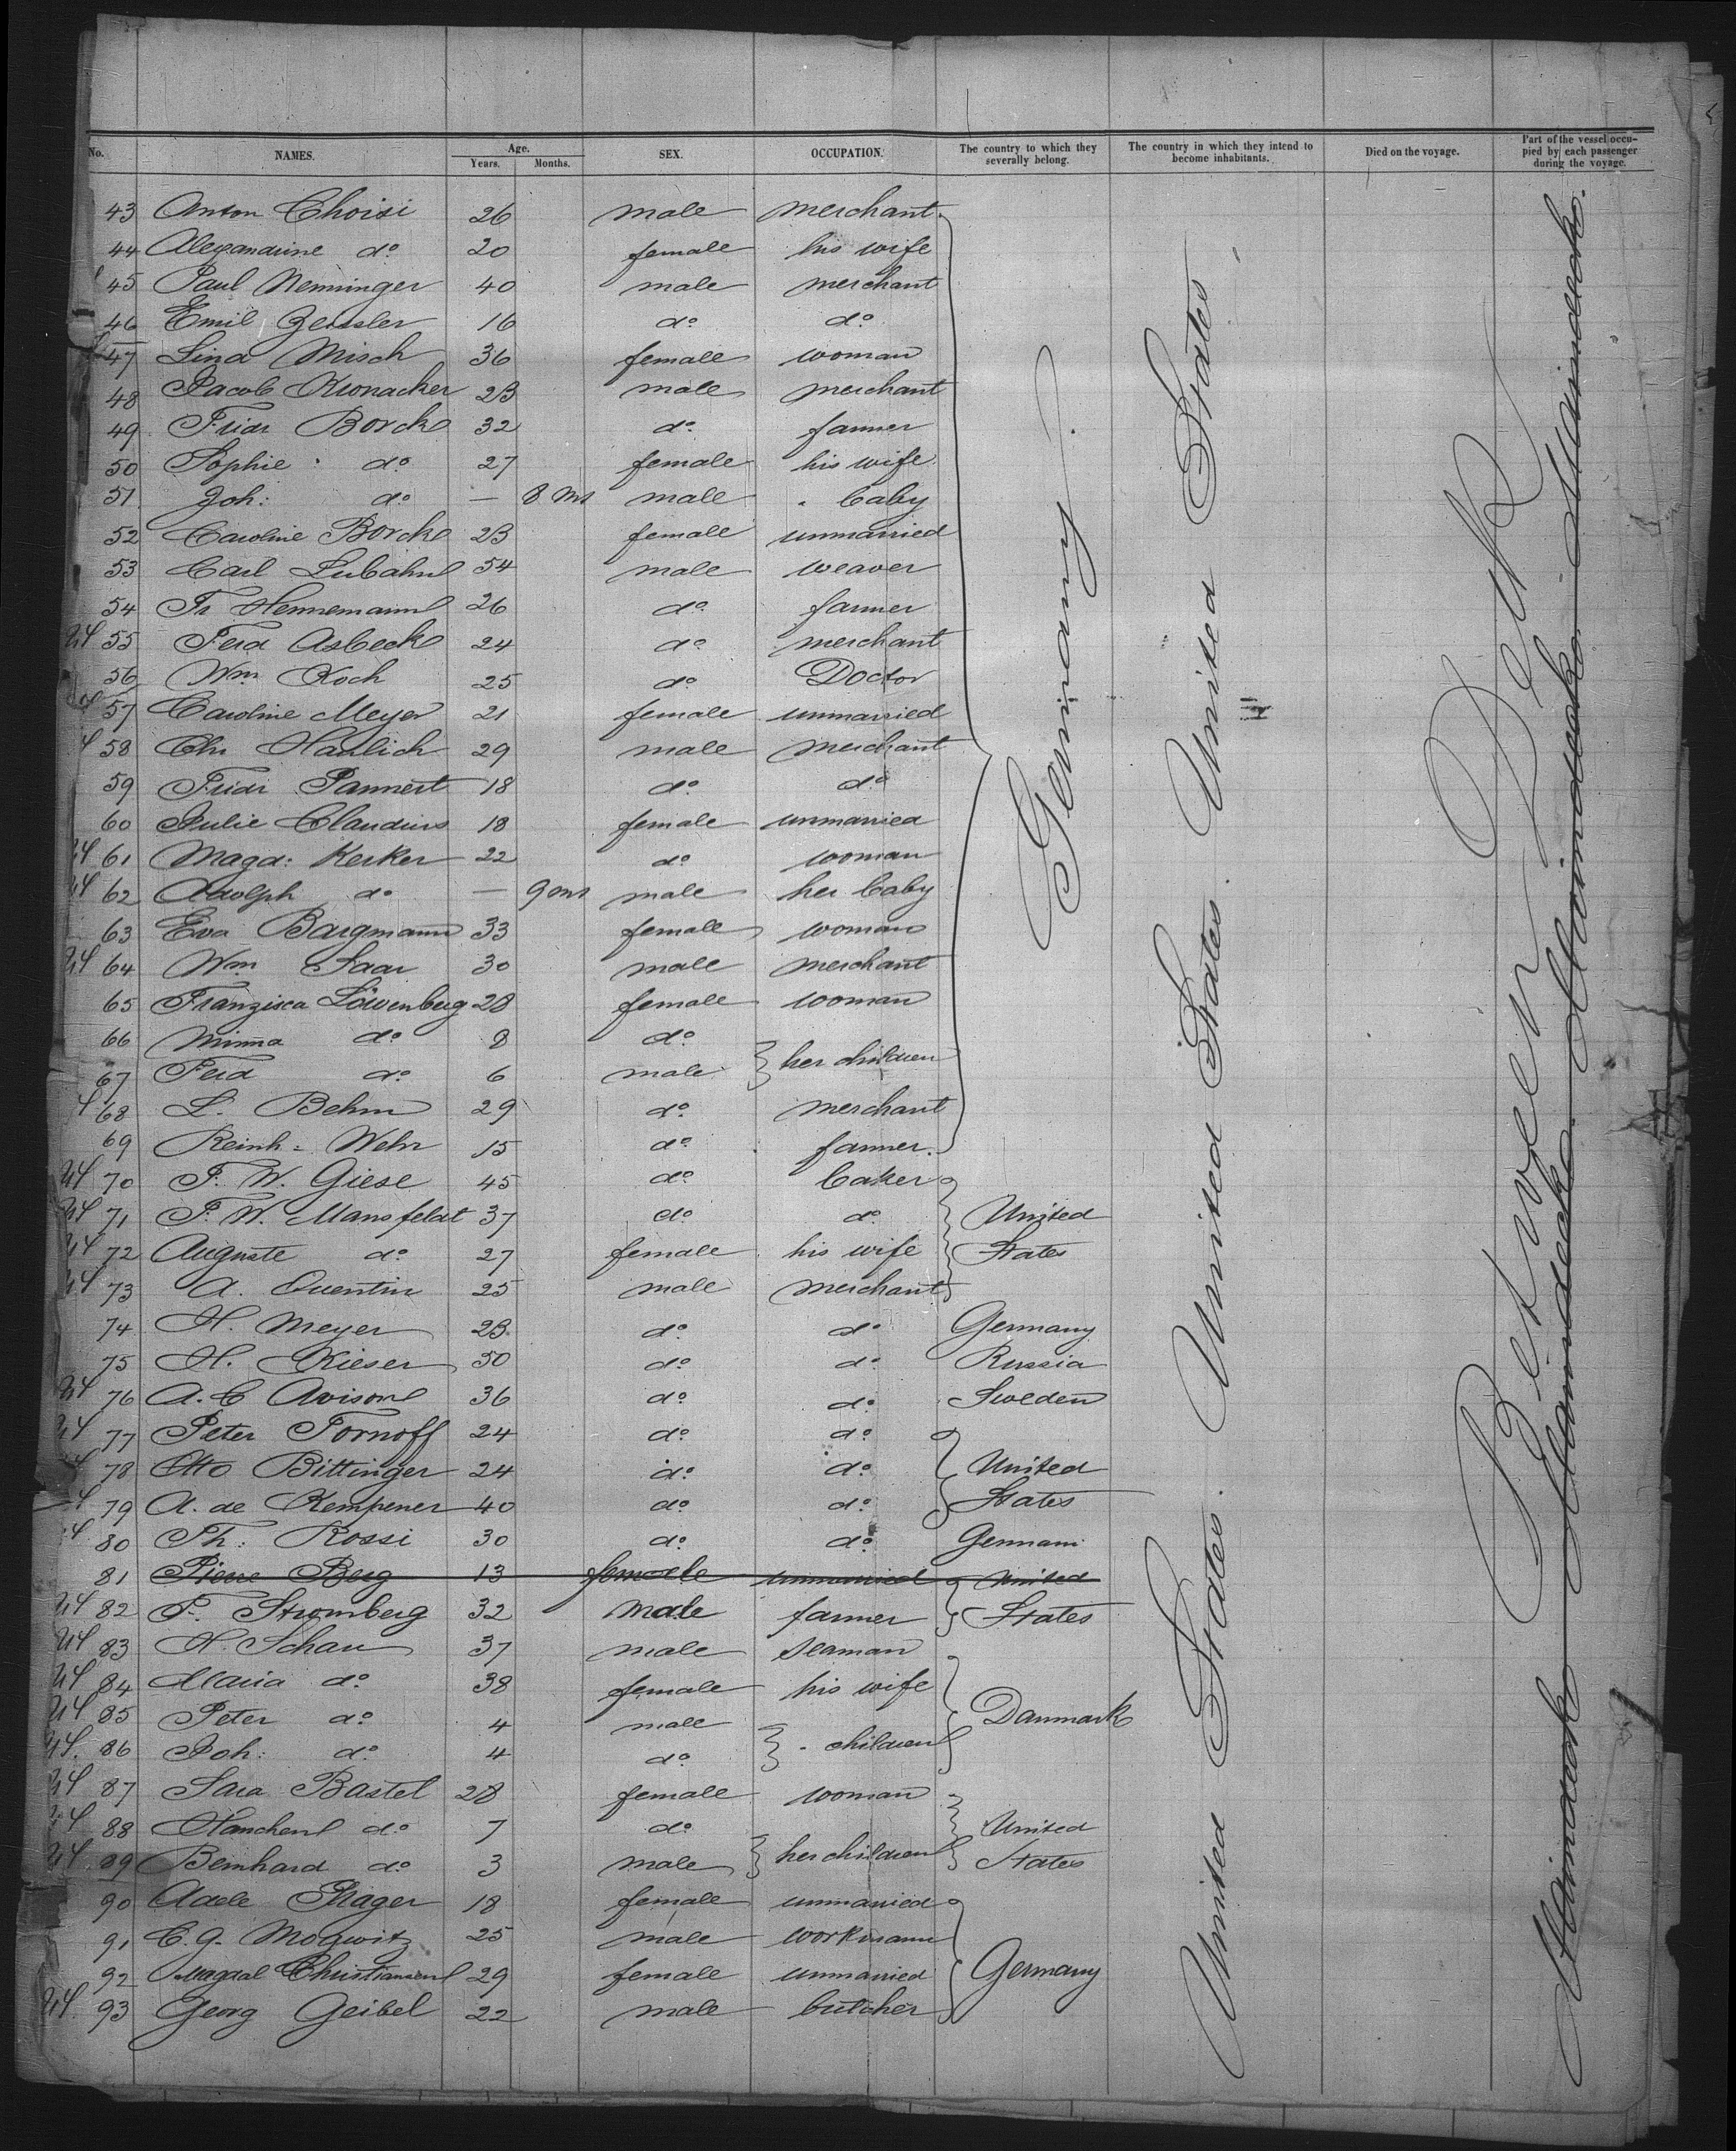 No. NAMES. Age. Years. Months. SEX. OCCUPATION. The country to which they severally belong. The country in which they intend to become inhabitants. Died on the voyage. Part of the vessel occupied by each passenger during the voyage.
43 Anton Choisi 26 male merchant
44 Alexandrine do 20 female his wife
45 Paul Nenninger 40 male merchant
46 Emil Zeissler 16 do do
47 Lina Misch 36 female woman
48 Jacob Kronacker 23 male merchant
49 Fridr Borck 32 do farmer
50 Sophie do 27 female his wife
51 Joh: do — 8 ms male baby
52 Caroline Borck 23 female unmarried
53 Carl Lubahn 54 male weaver
54 Fr Hennemann 26 do farmer
55 Ferd Asbeck 24 do merchant
56 Wm Koch 25 do Doctor
57 Caroline Meyer 21 female unmarried
58 Chr Haulich 29 male merchant
59 Fridr Pannert 18 do do
60 Julie Claudius 18 female unmarried
61 Magd: Kerker 22 do woman
62 Adolph do — 9 ms male her baby
63 Eva Bargmann 33 female woman
64 Wm Saar 30 male merchant
65 Franzisca Löwenberg 28 female woman
66 Minna do 8 do
her children
67 Ferd do 6 male
68 L. Behm 29 do merchant
69 Reinh. Wehr 15 do farmer.
Germany.
70 F. W. Giese 45 do baker
71 F. W. Mansfeldt 37 do do United
72 Auguste do 27 female his wife States
73 A. Quentin 25 male merchant
74 H. Meyer 23 do do Germany
75 H. Kieser 30 do do Russia
76 A. C Avison 36 do do Sweden
77 Peter Fornoff 24 do do
78 Otto Bittinger 24 do do United
79 A. de Kempener 40 do do States
80 Th: Rossi 30 do do Germani
81 Pierre Berg 13 female unmarried United
82 P. Stromberg 32 male farmer States
83 H. Schau 37 male seaman
84 Maria do 38 female his wife
85 Peter do 4 male Danmark
children
86 Joh: do 4 do
87 Sara Bastel 28 female woman
88 Hanchen do 7 do United
her children
89 Bernhard do 3 male States
90 Adele Prager 18 female unmarried
91 C. G. Mogwitz 25 male workmann
92 Magdal Christiansen 29 female unmarried Germany
93 Georg Geibel 22 male butcher
United States. United States. United States
Between Deck
Maindeck Maindeck Maindeck Maindeck.